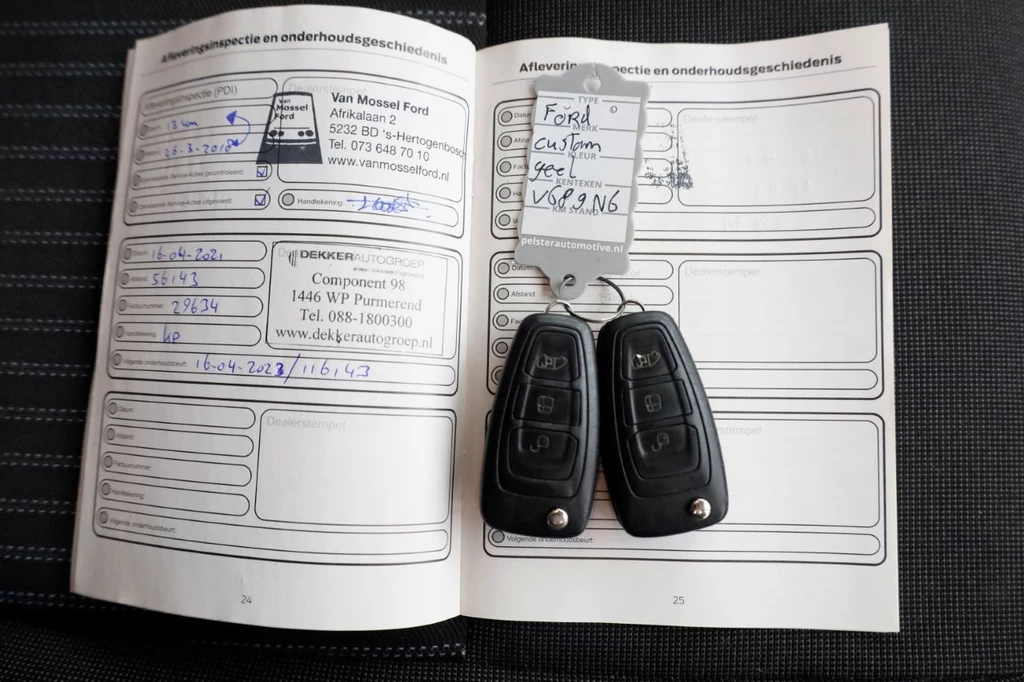 Afleveringsinspectie en onderhoudsgeschiedenis
Afleveringsinspectie (PDI)
Dealerstempel
13 km
28-3-2018
Openstaande Service-Acties gecontroleerd:
Openstaande Service-Acties uitgevoerd:
Van
Mossel
Ford
Van Mossel Ford
Afrikalaan 2
5232 BD 's-Hertogenbosch
Tel. 073 648 70 10
www.vanmosselford.nl
Handtekening:
Datum: 16-04-2021
Afstand: 56143
Factuurnummer: 29634
Handtekening: HP
Volgende onderhoudsbeurt: 16-04-2023/116143
DEKKERAUTOGROEP
www.dekkerautogroep.nl
Component 98
1446 WP Purmerend
Tel. 088-1800300
www.dekkerautogroep.nl
Datum:
Afstand:
Factuurnummer:
Handtekening:
Volgende onderhoudsbeurt:
Dealerstempel
24
Afleveringsinspectie en onderhoudsgeschiedenis
Dealerstempel
Datum:
Afstand:
Dealerstempel
Volgende onderhoudsbeurt:
25
TYPE
Ford
MERK
custom
KLEUR
geel
KENTEKEN
V689N6
KM STAND
pelsterautomotive.nl